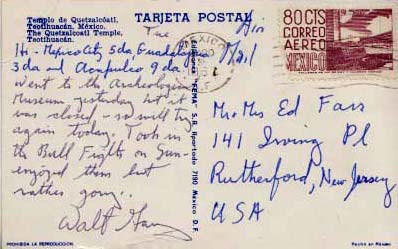 Templo de Quetzalcóatl,
Teotihuacán, México.
The Quetzalcoatl Temple,
Teotihuacán.
TARJETA POSTAL
Tue
Air
Mail
Hi - Mexico City 5 da Guadalajara
3 da and Acapulco 9 da.
Went to the Archeological
Museum yesterday but it
was closed - so will try
again today. Took in
the Bull Fights on Sun -
enjoyed them but
rather gory..
Walt
PROHIBIDA LA REPRODUCCION
S.A. Apartado 7190 México D.F.
MEXICO
80 CTS
CORREO
AEREO
MEXICO
Mr & Mrs Ed Fass
141 Irving Pl
Rutherford, New Jersey
USA
Hecho en México